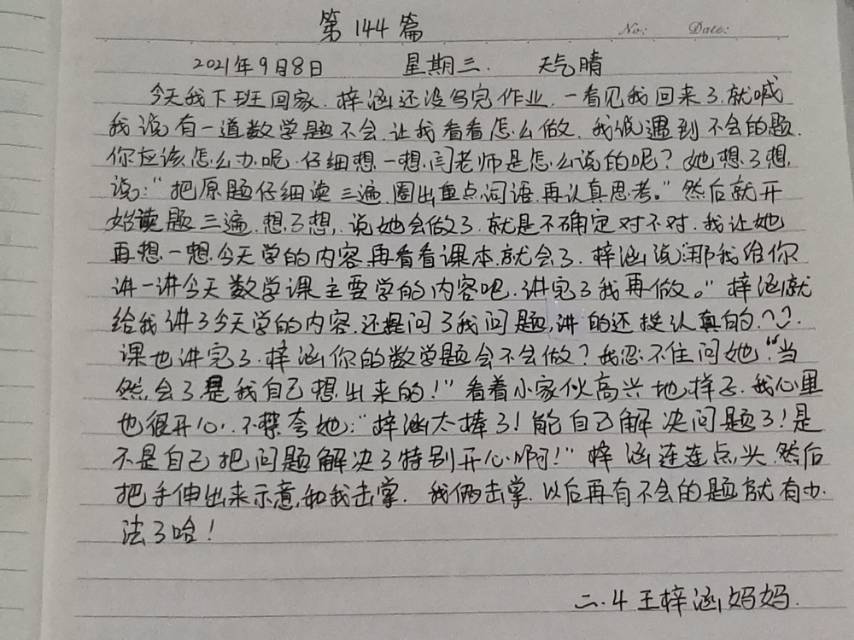 No: Date:
第144篇
2021年9月8日 星期三. 天气晴
今天我下班回家.梓涵还没写完作业.一看见我回来了.就喊
我说有一道数学题不会.让我看看怎么做.我说遇到不会的题.
你应该怎么办呢.仔细想一想,闫老师是怎么说的呢?她想了想,
说:"把原题仔细读三遍.圈出重点词语.再认真思考。"然后就开
始读题三遍.想了想,说她会做了.就是不确定对不对.我让她
再想一想今天学的内容.再看看课本.就会了.梓涵说:那我给你
讲一讲今天数学课主要学的内容吧.讲完了我再做。"梓涵就
给我讲了今天学的内容.还提问了我问题,讲的还挺认真的.
课也讲完了.梓涵你的数学题会不会做?我忍不住问她."当
然,会了是我自己想出来的!"看着小家伙高兴地样子.我心里
也很开心.不禁夸她:"梓涵太棒了!能自己解决问题了!是
不是自己把问题解决了特别开心啊!"梓涵连连点头.然后
把手伸出来示意,和我击掌.我俩击掌.以后再有不会的题就有办
法了哈!
二.4王梓涵妈妈.